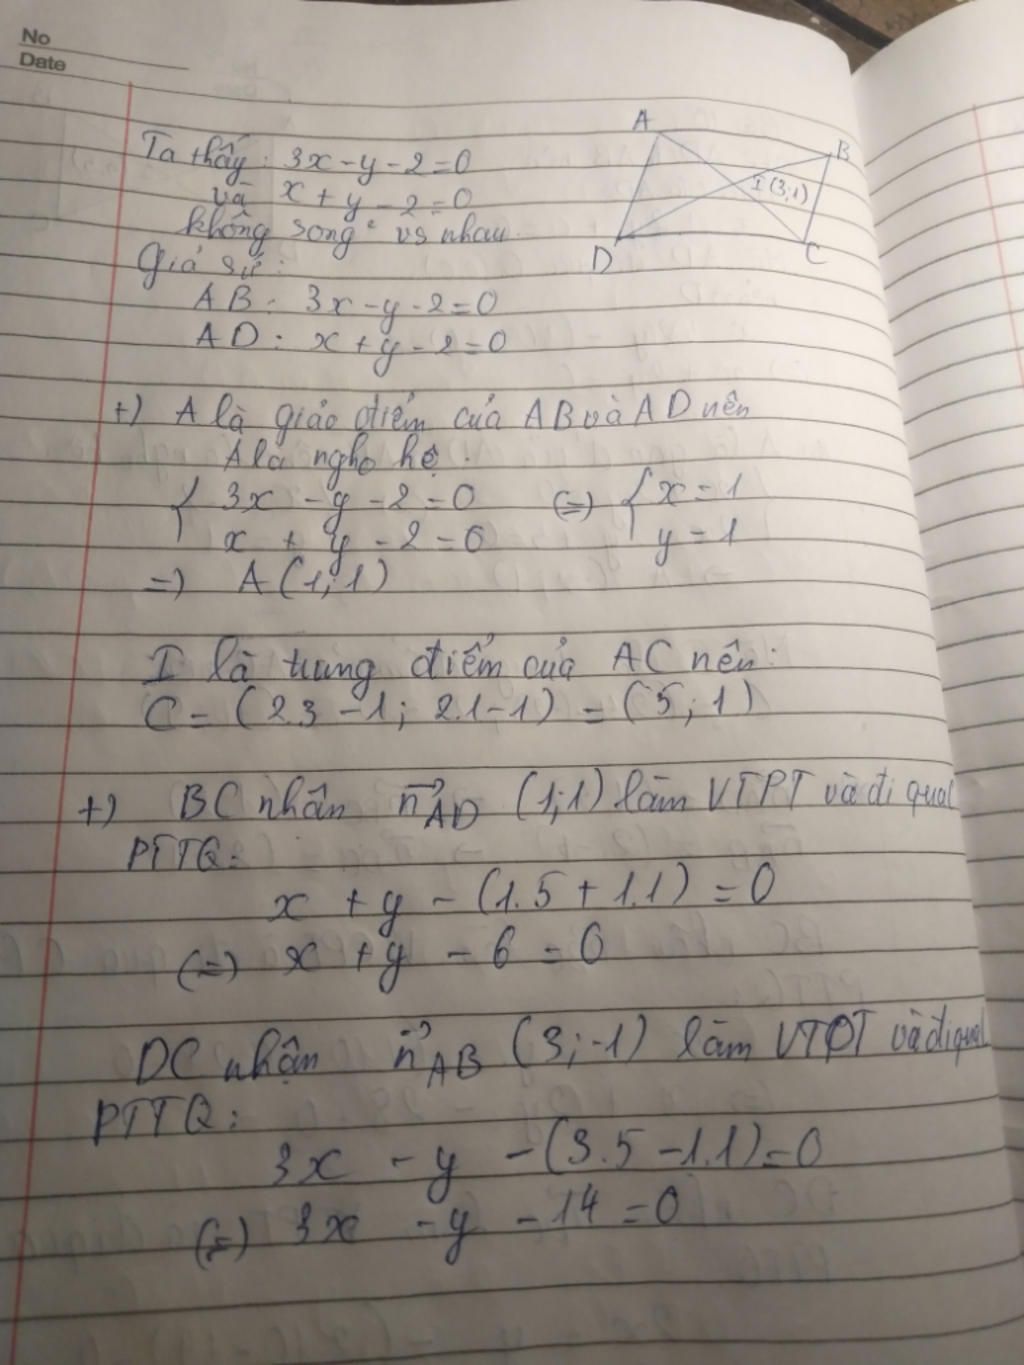 No
Date
A
B
I (3;1)
D
C
Ta thấy: 3x - y - 2 = 0
và x + y - 2 = 0
không song² vs nhau.
Giả sử:
AB: 3x - y - 2 = 0
AD: x + y - 2 = 0
+) A là giao điểm của AB và AD nên
A là ngho hệ.
{ 3x - y - 2 = 0 (=) { x = 1
x + y - 2 = 0 y = 1
=) A (1; 1)
I là trung điểm của AC nên:
C = (2.3 - 1; 2.1 - 1) = (5; 1)
+) BC nhân n⃗AD (1; 1) làm VTPT và đi qua
PTTQ:
x + y - (1.5 + 1.1) = 0
(=) x + y - 6 = 0
DC nhận n⃗AB (3; -1) làm VTPT và đi qua
PTTQ:
3x - y - (3.5 - 1.1) = 0
(=) 3x - y - 14 = 0